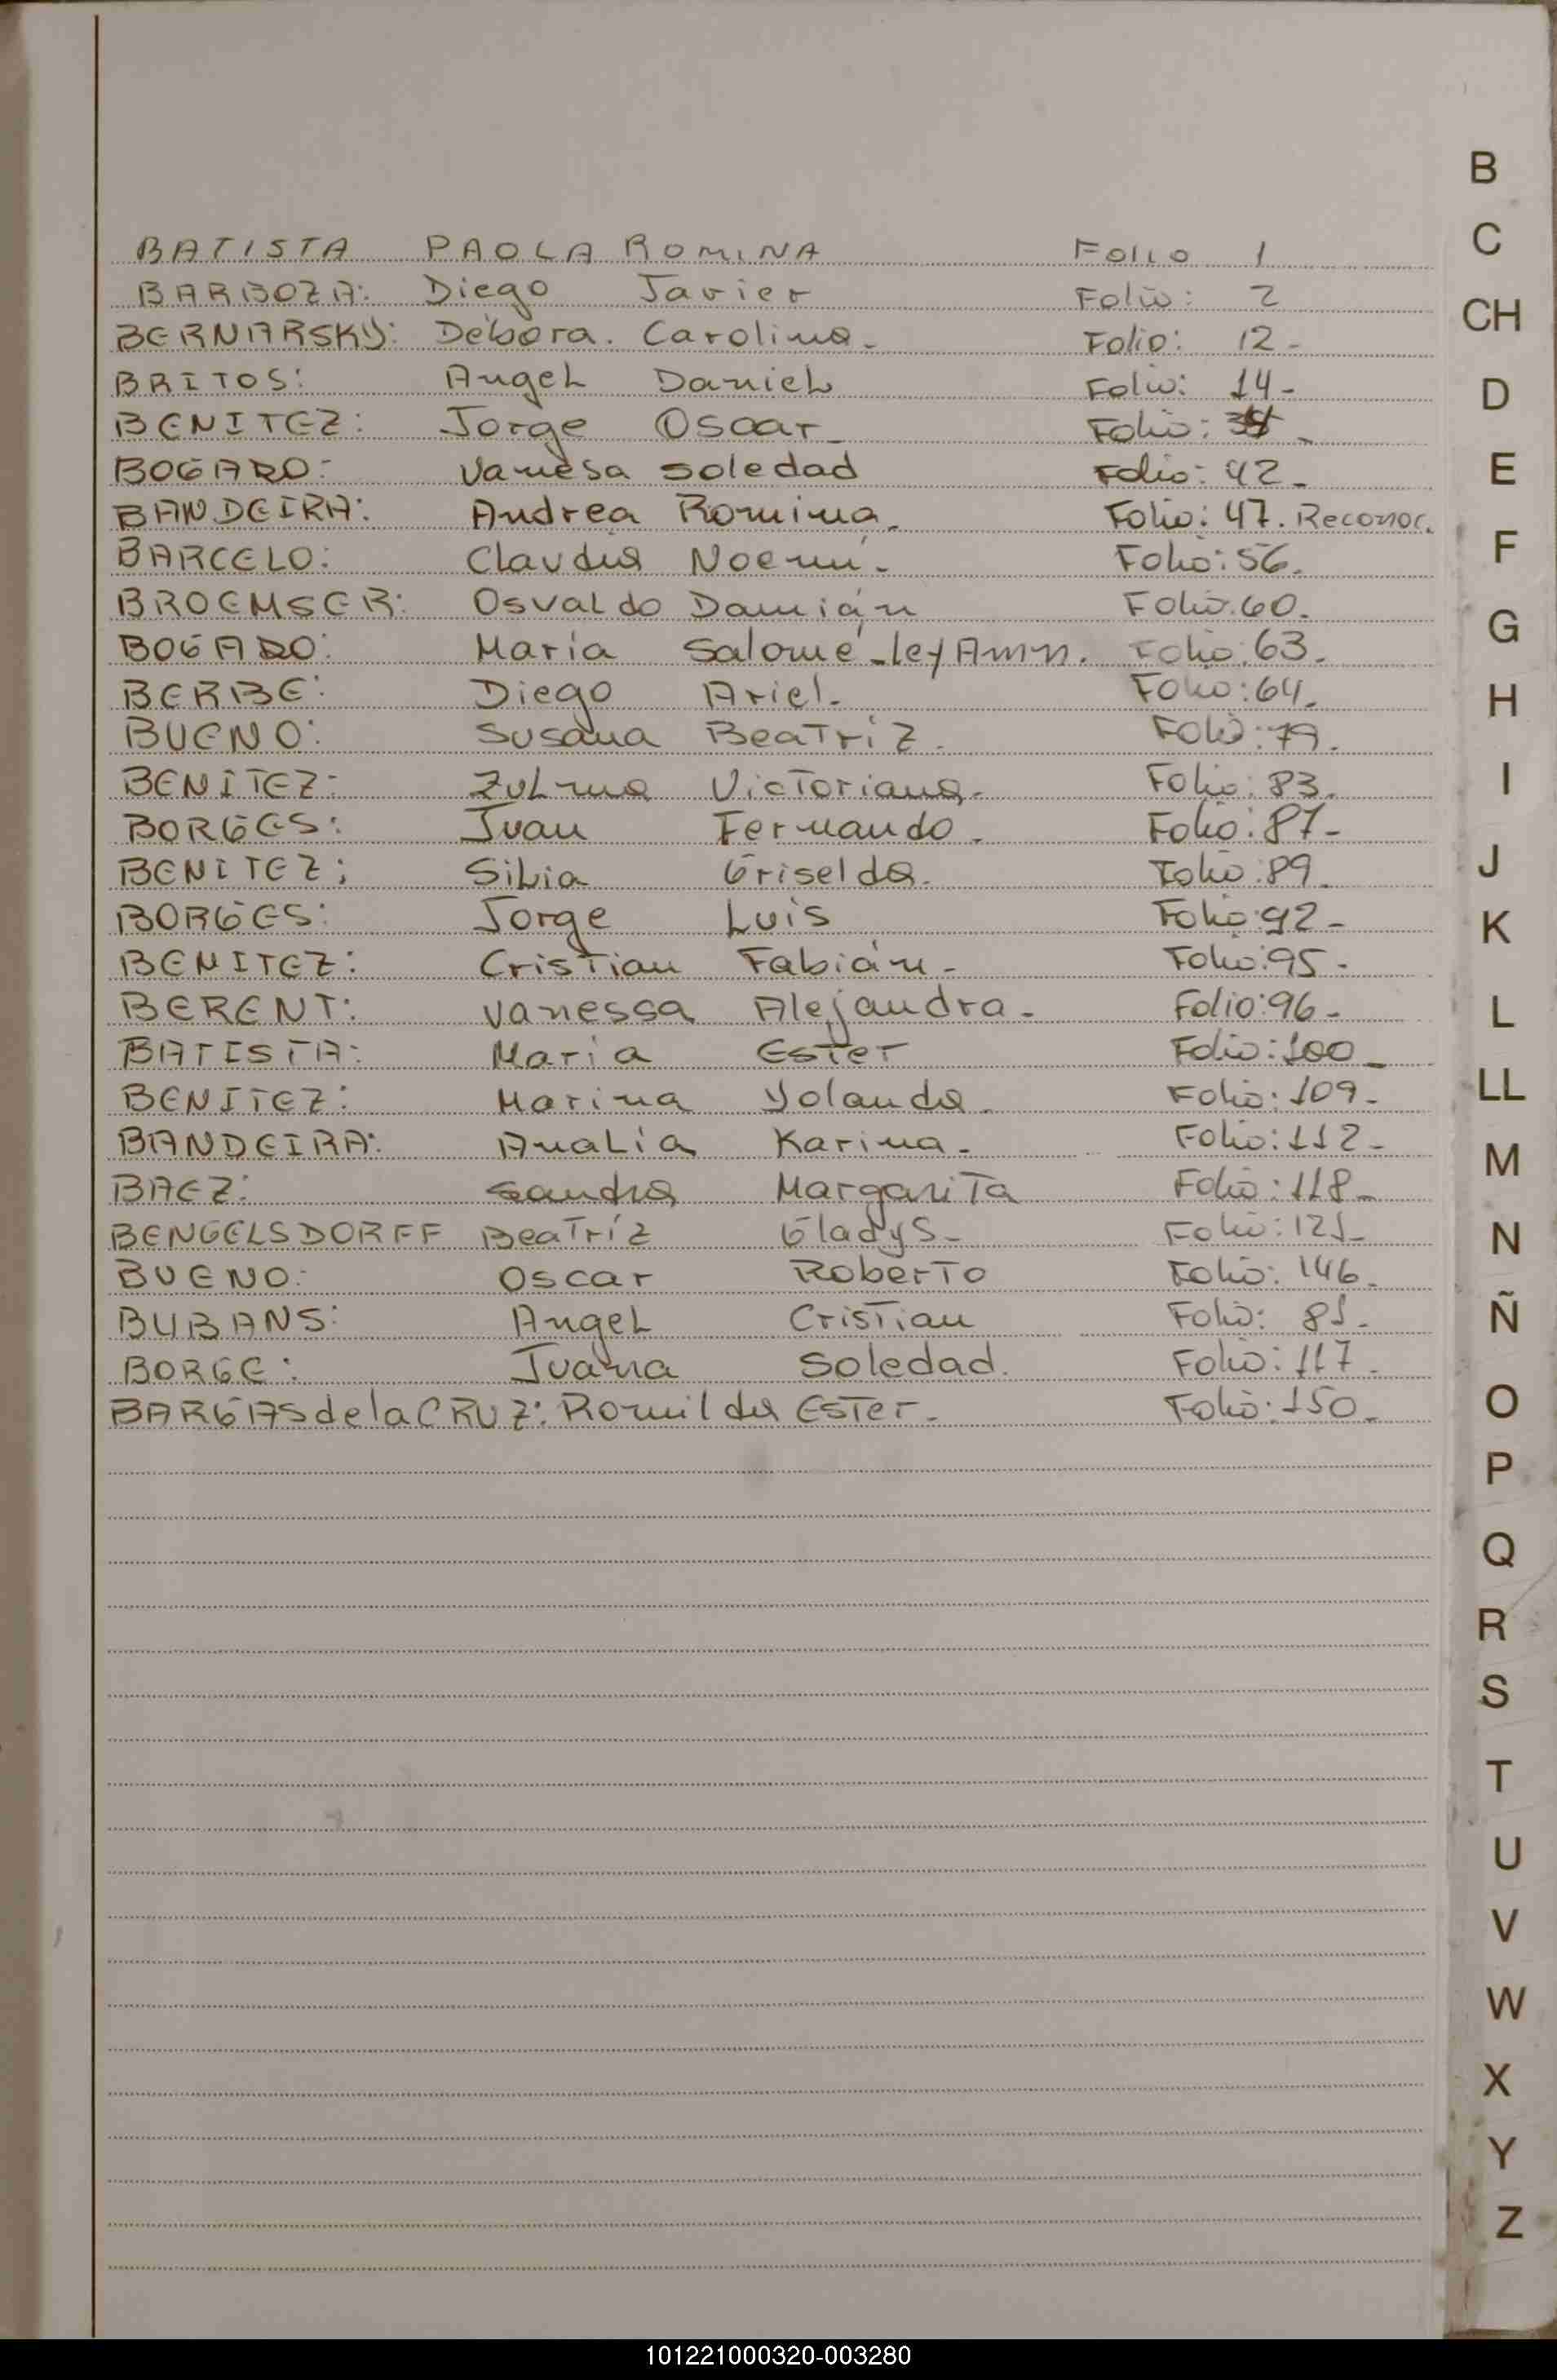 BATISTA PAOLA ROMINA Folio 1
BARBOZA: Diego Javier Folio: 2
BERNARSKY: Débora. Carolina. Folio: 12-
BRITOS: Angel Daniel Folio: 14-
BENITEZ: Jorge Oscar- Folio:
BOGADO: Vanesa Soledad Folio: 42-
BANDEIRA: Andrea Romina. Folio: 47. Reconoc.
BARCELO: Claudia Noemí. Folio: 56.
BROEMSER: Osvaldo Damián Folio. 60.
BOGADO: Maria Salomé-ley Folio: 63.
BERBE: Diego Ariel. Folio: 64.
BUENO: Susana Beatríz. Folio: 79.
BENITEZ: Zulma Victoriana. Folio: 83.
BORGES: Juan Fernando. Folio: 87-
BENITEZ: Silvia Griselda. Folio: 89.
BORGES: Jorge Luis Folio: 92-
BENITEZ: Cristian Fabián- Folio: 95-
BERENT: Vanessa Alejandra- Folio: 96-
BATISTA: Maria Ester Folio: 100-
BENITEZ: Marina Yolanda. Folio: 109-
BANDEIRA: Analía Karina- Folio: 112-
BAEZ: Sandra Margarita Folio: 118-
BENGELSDORFF Beatríz Gladys- Folio: 121-
BUENO: Oscar Roberto Folio: 146-
BUBANS: Angel Cristian Folio: 81-
BORGE: Juana Soledad. Folio: 117.
BARGAS de la CRUZ: Romilda Ester- Folio: 150-
B
C
CH
D
E
F
G
H
I
J
K
L
LL
M
N
Ñ
O
P
Q
R
S
T
U
V
W
X
Y
Z
101221000320-003280